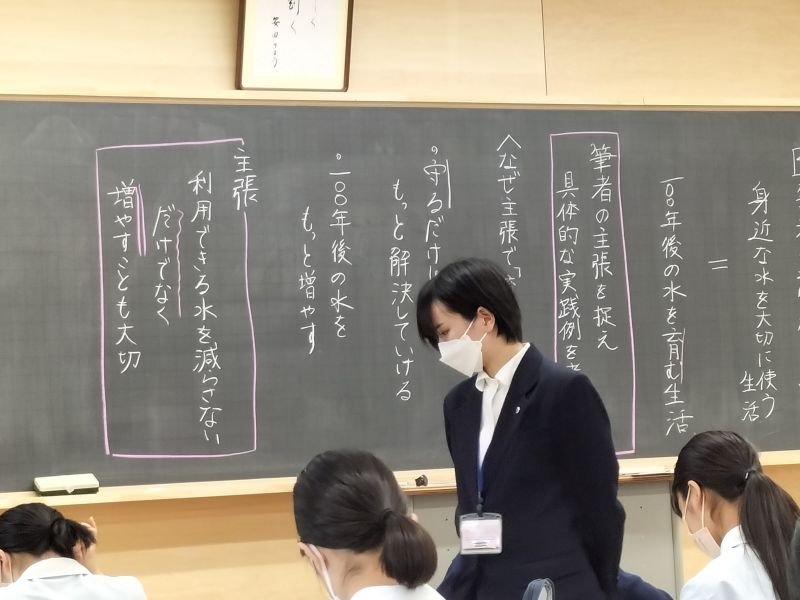 身近な水を大切に使う
生活
＝
一〇〇年後の水を育む生活
筆者の主張を捉え
具体的な実践例を考
〈なぜ主張で
。守るだけ
もっと解決していける
。一〇〇年後の水を
もっと増やす
主張
利用できる水を減らさない
だけでなく
増やすことも大切